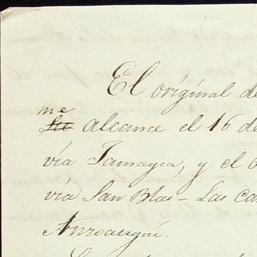 El original de
me
alcance el 16 de
vía Jamaica, y el 6
vía San Blas – Las Ca
Anzoategui.